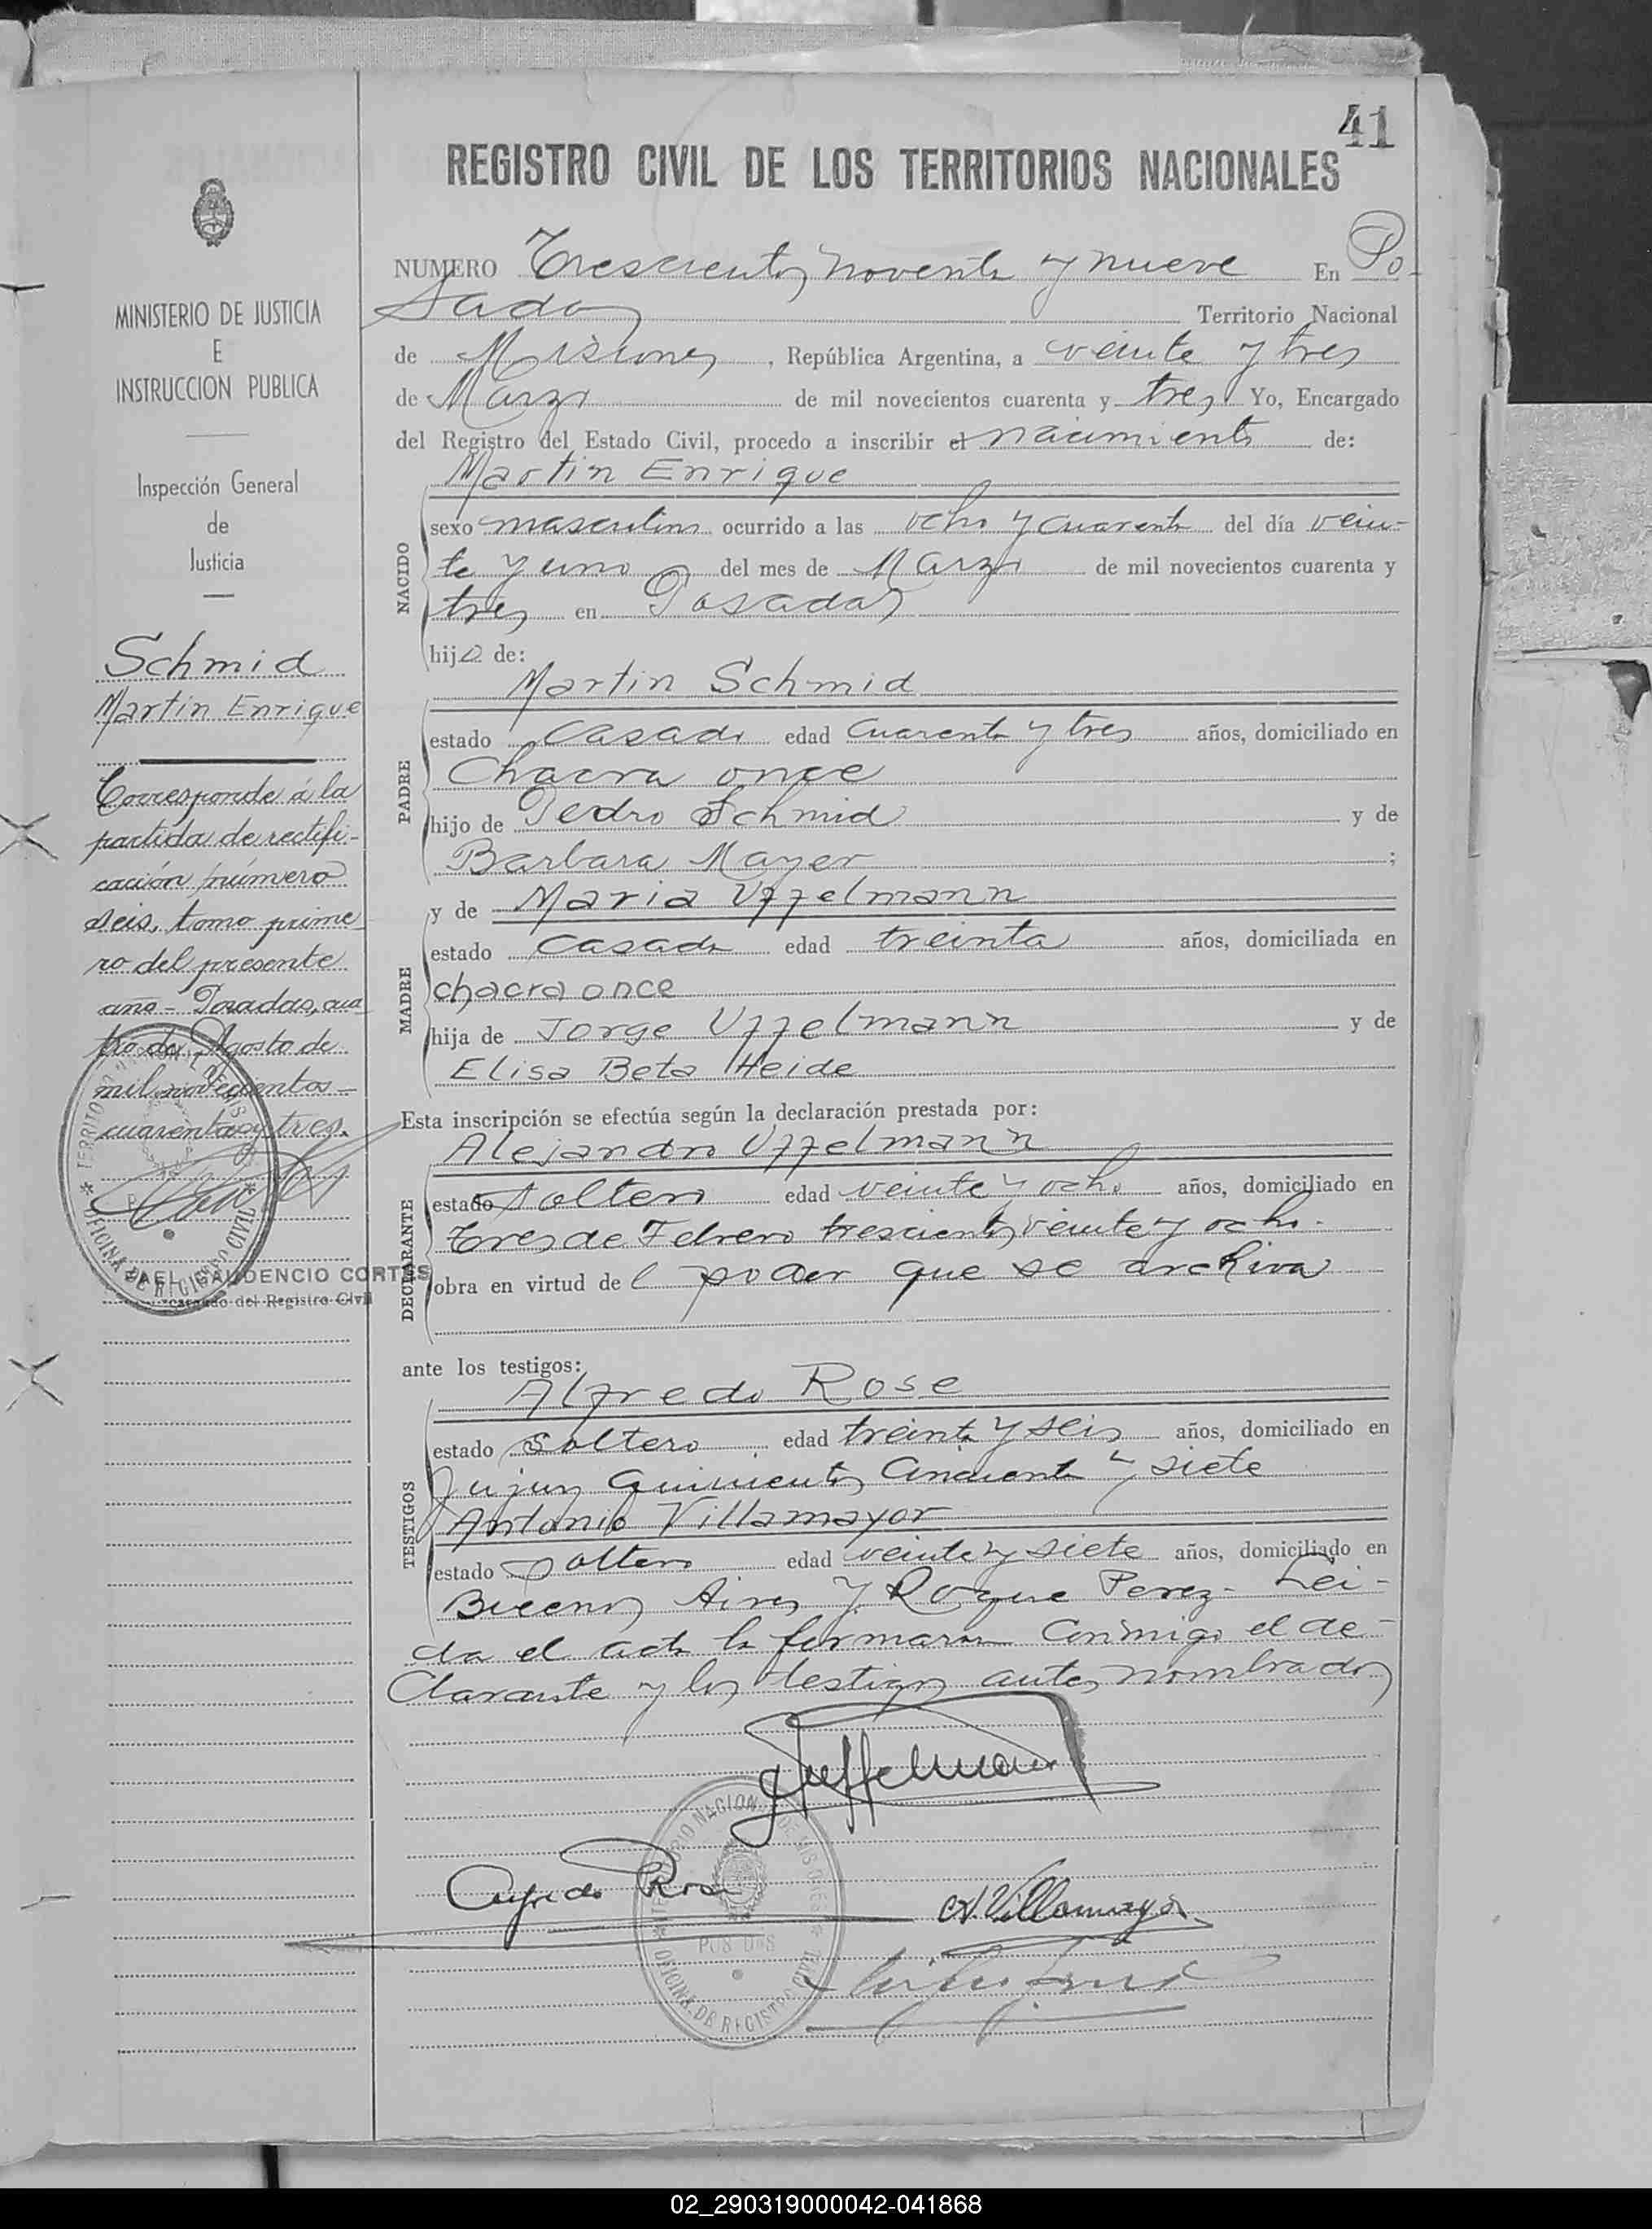 41
REGISTRO CIVIL DE LOS TERRITORIOS NACIONALES
NUMERO Trescientos noventa y nueve En Po-
sadas Territorio Nacional
de Misiones, República Argentina, a veinte y tres
de Marzo de mil novecientos cuarenta y tres Yo, Encargado
del Registro del Estado Civil, procedo a inscribir el nacimiento de:
Martin Enrique
NACIDO
sexo masculino ocurrido a las ocho y cuarenta del día vein-
te y uno del mes de Marzo de mil novecientos cuarenta y
tres en Posadas
hijo de:
Martin Schmid
PADRE
estado casado edad cuarenta y tres años, domiciliado en
Chacra once
hijo de Pedro Schmid y de
Barbara Mayer ;
y de Maria Uffelmann
MADRE
estado casada edad treinta años, domiciliada en
chacra once
hija de Jorge Uffelmann y de
Elisa Beta Heide
Esta inscripción se efectúa según la declaración prestada por:
Alejandro Uffelmann
DECLARANTE
estado soltero edad veinte y ocho años, domiciliado en
tres de Febrero trescientos veinte y ocho.
obra en virtud de l poder que se archiva
ante los testigos:
Alfredo Rose
TESTIGOS
estado soltero edad treinta y seis años, domiciliado en
Jujuy quinientos cincuenta y siete
Antonio Villamayor
estado soltero edad veinte y siete años, domiciliado en
Buenos Aires y Roque Perez- Lei-
da el acta la firmaron conmigo el de-
clarante y los testigos antes nombrados
Uffelmann
Alfredo Rose
A. Villamayor
TERRITORIO NACIONAL DE MISIONES
POSADAS
OFICINA DE REGISTRO CIVIL
MINISTERIO DE JUSTICIA
E
INSTRUCCION PUBLICA
Inspección General
de
Justicia
Schmid
Martin Enrique
Corresponde á la
partida de rectifi-
cación número
seis, tomo prime
ro del presente
año - Posadas, cua
tro de Agosto de
mil novecientos
cuarenta y tres.
TERRITORIO NACIONAL DE MISIONES
OFICINA DE REGISTRO CIVIL
GAUDENCIO CORTES
Encargado del Registro Civil
02_290319000042-041868